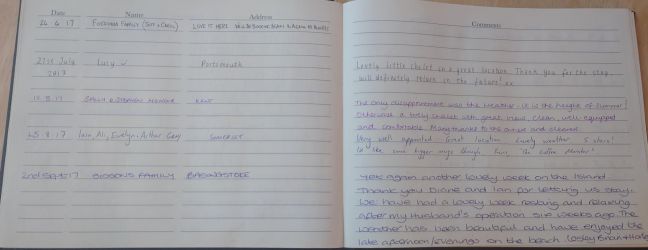 Date Name Address
24.6.17 FAMILY LOVE IT HERE
21st July Lucy Portsmouth
2017
.8.17 & STEPHEN KENT
.8.17 Iain, Ali, Evelyn & Arthur Gray SOMERSET
2nd SEPT 17 FAMILY BASINGSTOKE
Comments
Lovely little chalet in a great location. Thank you for the stay
will definitely return in the future! xx
The only disappointment was the weather - it is the height of summer!
Otherwise a lovely chalet with great views, clean, well equipped
and comfortable. Many thanks to the owner and cleaner.
Very well appointed. Great location. Lovely weather. 5 stars!
some bigger mugs though
Yet again another lovely week on the Island.
Thank you Diane and Ian for letting us stay.
We have had a lovely week resting and relaxing
after my husband's operation six weeks ago. The
weather has been beautiful and have enjoyed the
late afternoon/evenings on the beach